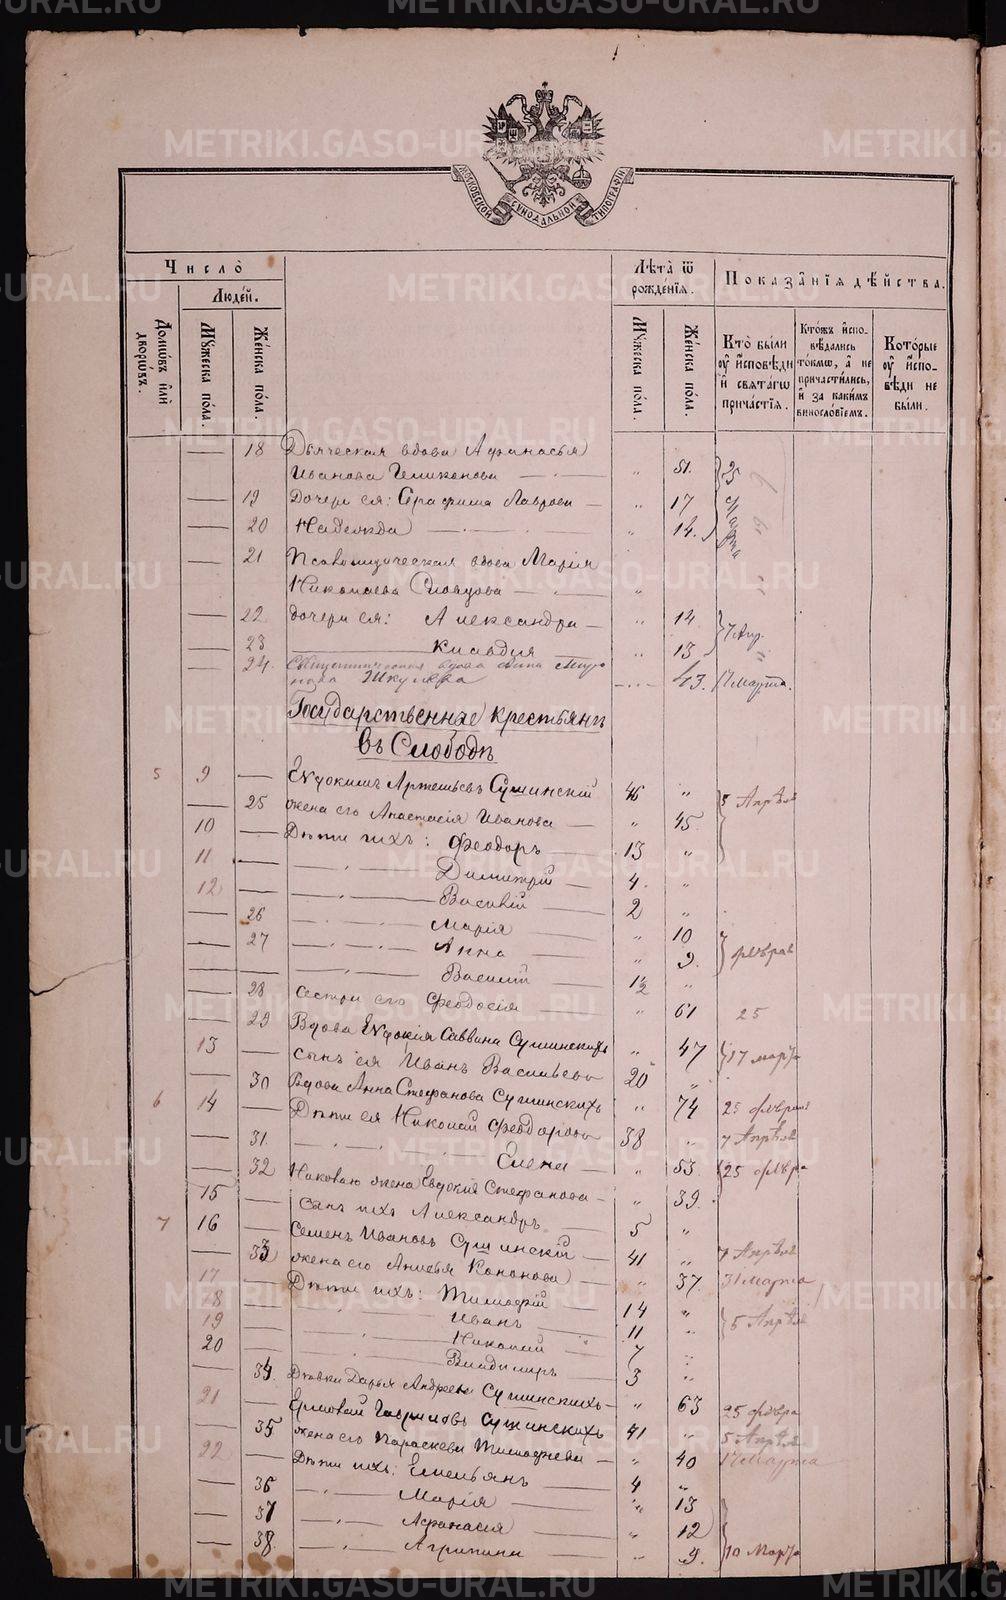 МОСКОВСКОЙ СУНОДАЛЬНОЙ ТИПОГРАФІИ
Число̀
Людей.
Домѡвъ илѝ дворѡвъ.
Мꙋжеска по́ла.
Же́нска по́ла.
Лѣта̀ ѿ рожде́нїѧ.
Мꙋжеска по́ла.
Же́нска по́ла.
Показа̑нїѧ дѣ́йства.
Кто̀ бы́ли ᲂу҆ и҆́сповѣди и҆ свѧта́гѡ причастїѧ.
Кто́жъ и҆спо-
вѣ́дались
то́кмѡ, а҆ не
причасти́лись,
и҆ за каки́мъ
винословїемъ.
Кото́рые ᲂу҆ и҆́спо-
вѣди не
бы́ли.
— 18 Дьяческая вдова Афанасья
Иванова — „ 51. 25 Марта
— 19 Дочери ея: Серафима — „ 17
— 20 Надежда — „ 14.
— 21 Псаломщическая вдова Марія
Николаева Словцова — „
— 22 дочери ея: Александра — „ 14 7 Апр.
— 23 Клавдия „ 13
— 24. вдова Анна
43. 17 Марта.
Государственные крестьяне
въ Слободѣ
5 9 — Евдокимъ Артемьевъ Сушинскій 46 „ 5 Апрѣля
— 25 жена его Анастасія Иванова — „ 45
10 — Дѣти ихъ: Феодоръ 13 „
11 — Димитрій — 4. „
12 — Василій — 2 „
— 26 Марія — „ 10
— 27 Анна — „ 9. феврал
— Василій 12 „
— 28 сестра его Феодосія „ 61 25
— 29 Вдова Евдокія Саввина Сушинскихъ „ 47 17 марта
13 — сынъ ея Иванъ Васильевъ 20 „
— 30 Вдова Анна Стефанова Сушинскихъ „ 74 25 февраля
6 14 — Дѣти ея Николай Феодоровъ 38 „ 7 Апрѣля
— 31. Елена — „ 53. 25 февра
— 32 Николаю жена Евдокия Стефанова — „ 39.
15 — сынъ ихъ Александръ 5 „
7 16 — Семенъ Ивановъ Сушинскій — 41 „ 7 Апрѣля
— 33 жена его Анисья Кононова „ 37. 31 Марта
17 — Дѣти ихъ: Тимофей 14 „ 5 Апрѣля
18 — Иванъ 11 „
19 — Николай 7 „
20 — Владимиръ 3 „
— 34. Дѣвка Дарья Андреева Сушинскихъ — „ 63 25 февра
21 — Ермолай Гавриловъ Сушинскихъ 41 „ 5 Апрѣля
— 35 жена его Параскева Тимофеева — „ 40 17 Марта
22 — Дѣти ихъ: Емельянъ 4 „
— 36 Марія „ 13
— 37 Афанасія „ 12
— 38. Агрипина „ 9. 10 Марта
METRIKI.GASO-URAL.RU